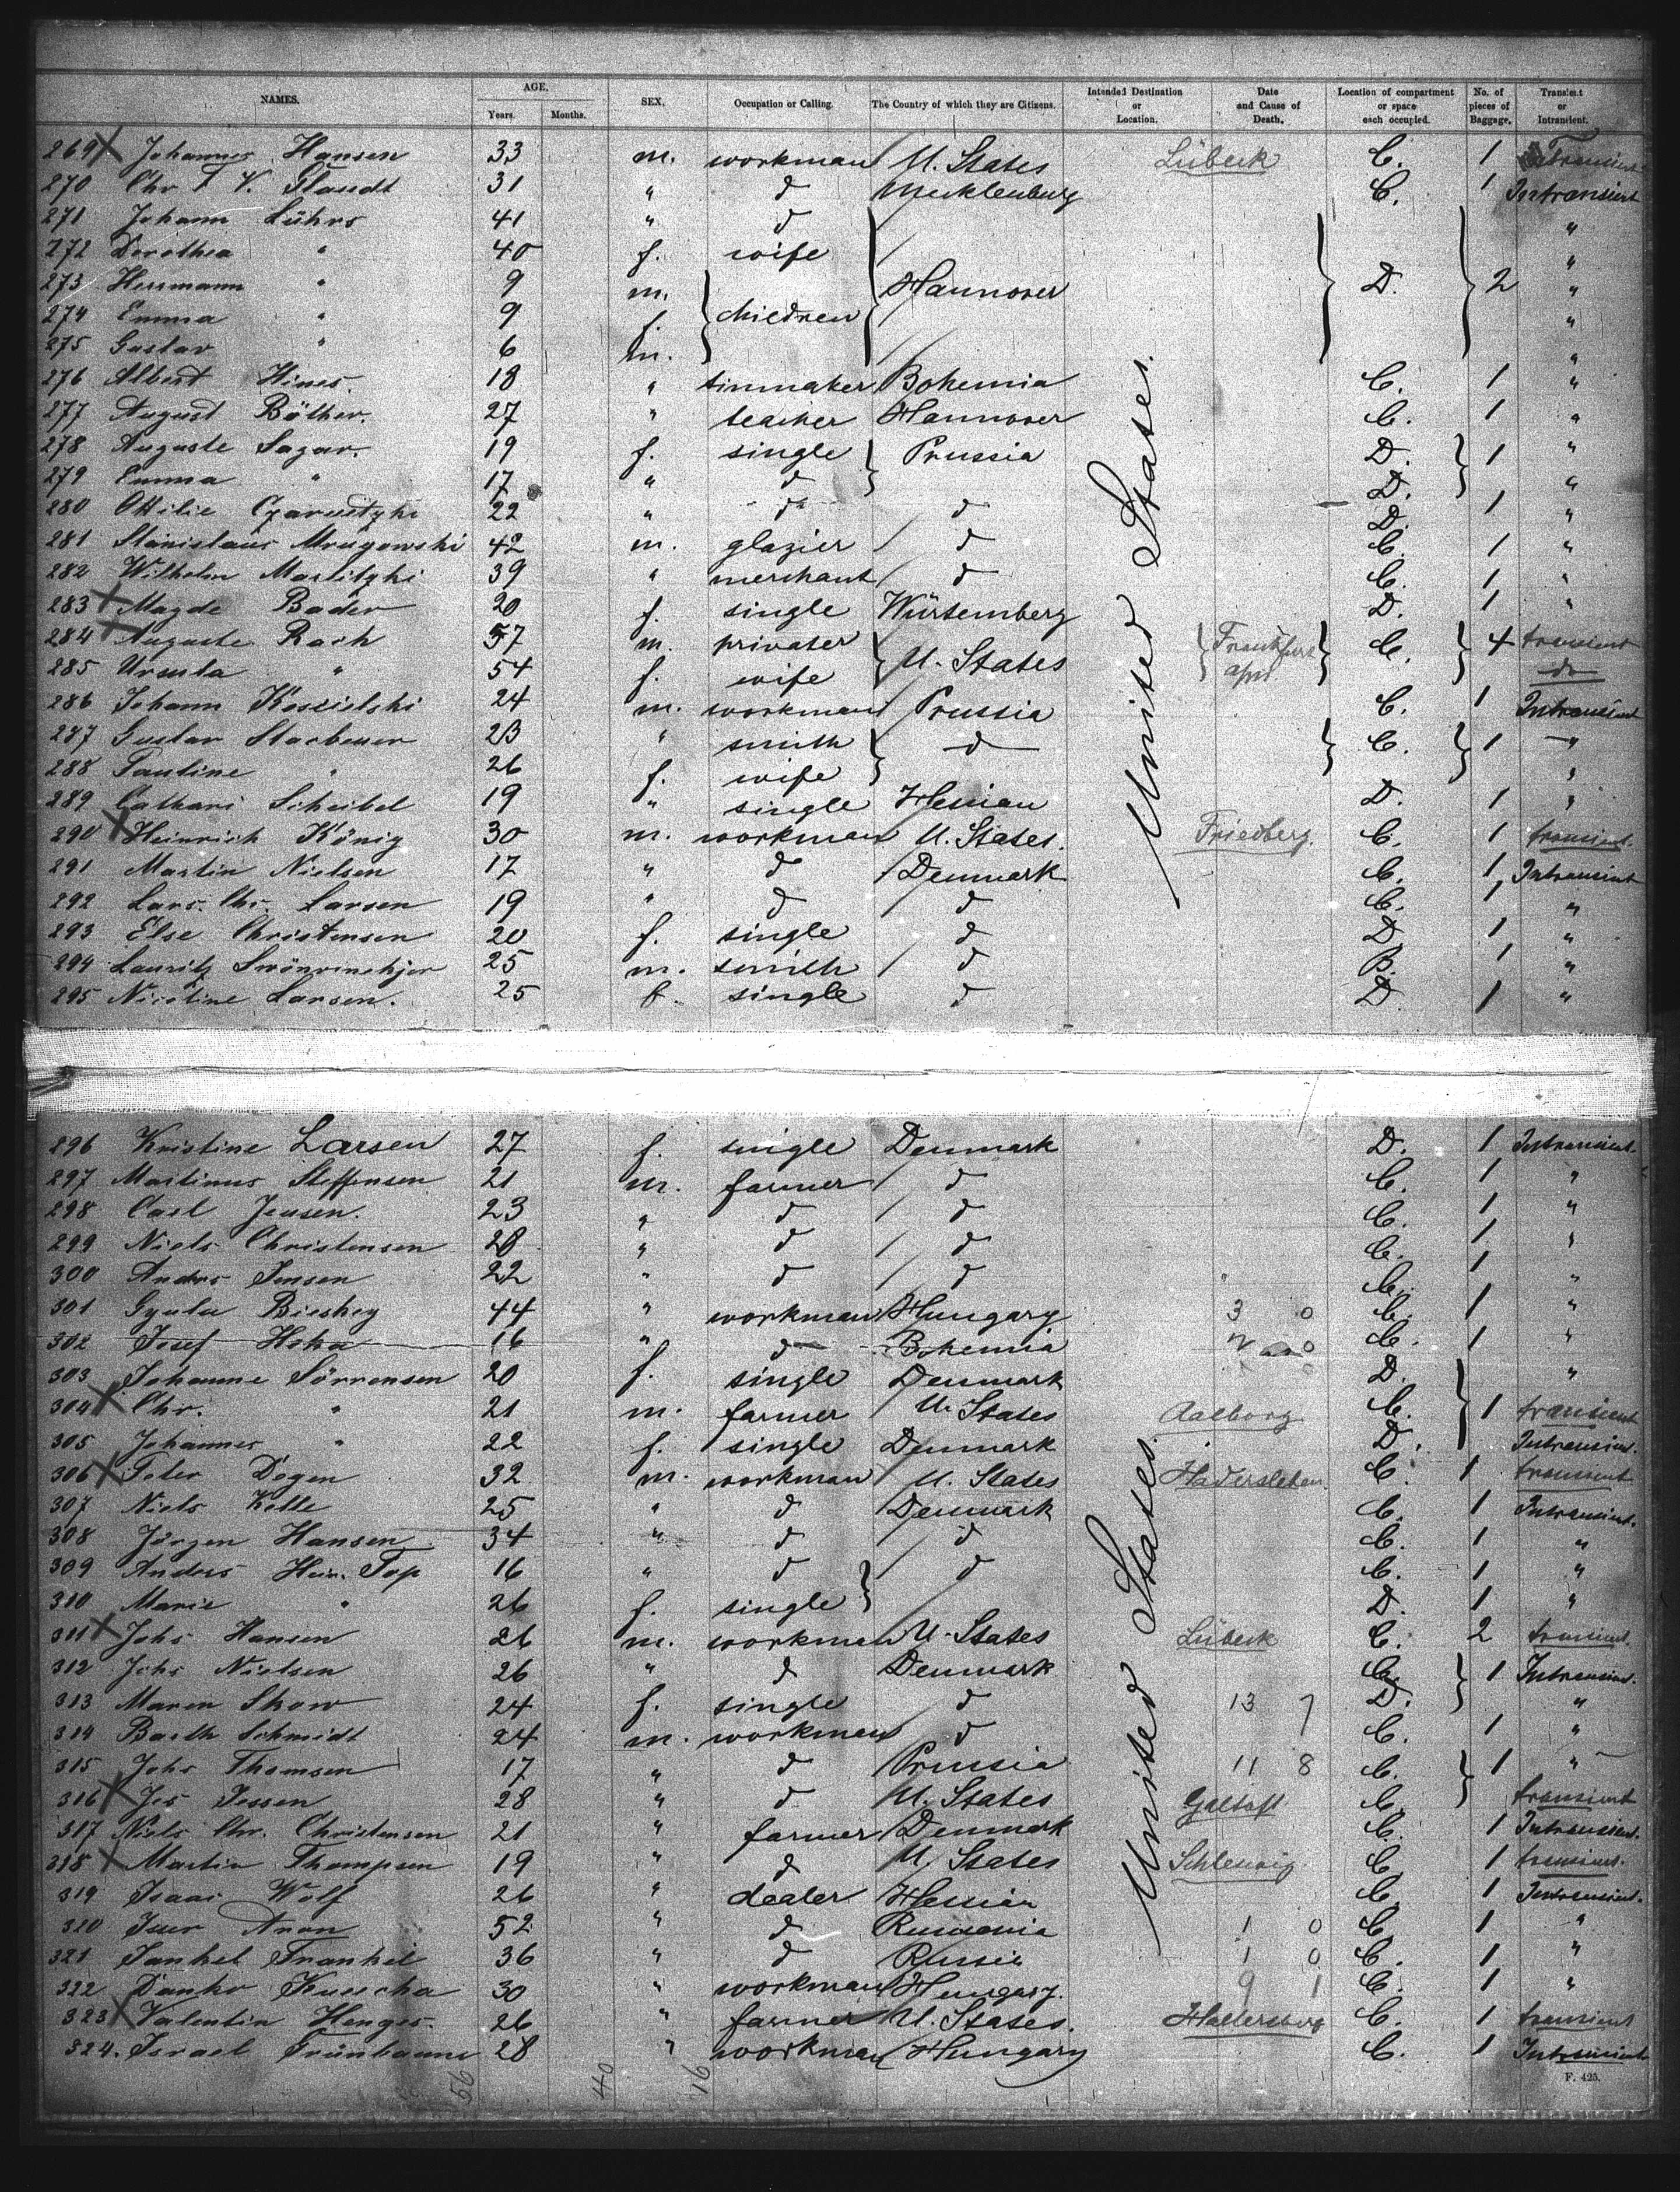 NAMES. AGE. Years. Months. SEX. Occupation or Calling. The Country of which they are Citizens. Intended Destination or Location. Date and Cause of Death. Location of compartment or space each occupied. No. of pieces of Baggage. Transient or Intransient.
269 Johannes Hansen 33 m. workman U. States Lübeck C. 1 Transient
270 Chr F V. Staudt 31 " d Mecklenburg C. 1 Intransient
271 Johann Lührs 41 " d "
272 Dorothea " 40 f. wife "
273 Herrmann " 9 m. children Hannover D. 2 "
274 Emma " 9 f. "
275 Gustav " 6 m. "
276 Albert Hines. 18 " tinmaker Bohemia C. 1 "
277 August Böther. 27 " teacher Hannover C. 1 "
278 Auguste Sagar. 19 f. single Prussia D. 1 "
279 Emma " 17 " d D. "
280 Ottilie 22 " d d D. 1 "
281 Stanislaus Mrugowski 42 m. glazier d C. 1 "
282 Wilhelm 39 " merchant d C. 1 "
283 Magde Bader 20 f. single Würtemberg D. 1 "
284 Auguste Rach 57 m. privater U. States Frankfurt C. 4 transient
285 Ursula " 54 f. wife do
286 Johann Koscielski 24 m. workman Prussia C. 1 Intransient
287 Gustav 23 " smith d C. 1 "
288 " 26 f. wife "
289 Cathari Scheibel 19 " single Hessian D. 1 "
290 Heinrich König 30 m. workman U. States. Friedberg. C. 1 transient.
291 Martin Nielsen 17 " d Denmark C. 1 Intransient
292 Lars. Chr. Larsen 19 " d d C. 1 "
293 Else Christensen 20 f. single d D 1 "
294 Lauritz 25 m. smith d B. 1 "
295 Nicoline Larsen. 25 f. single d D 1 "
United States.
296 Kristine Larsen 27 f. single Denmark D. 1 Intransient
297 Martinus Steffensen 21 m. farmer d C. 1 "
298 Carl Jensen. 23 " d d C. 1 "
299 Niels Christensen 28 " d d C. 1 "
300 Anders Jensen 22 " d d C. 1 "
301 Gyula 44 " workman Hungary 3 0 C. 1 "
302 Josef 16 " d Bohemia C. 1 "
303 Johanne Sörrensen 20 f. single Denmark D. "
304 Chr. " 21 m. farmer U. States Aalborg C. 1 transient
305 Johannes " 22 f. single Denmark D. Intransient.
306 Peter Degen 32 m. workman U. States Hadersleben. C. 1 transient
307 Niels Kelle 25 " d Denmark C. 1 Intransient.
308 Jürgen Hansen 34 " d d C. 1 "
309 Anders Hein. Top 16 " d d C. 1 "
310 Marie " 26 f. single D. 1 "
311 Johs Hansen 26 m. workman U. States Lübeck C. 2 transient.
312 Johs Nielsen 26 " d Denmark C. 1 Intransient.
313 Maren Skow 24 f. single d 13 7 D. "
314 Barth Schmidt 24 m. workman d C. 1 "
315 Johs Thomsen 17 " d Prussia 11 8 C. 1 "
316 Jes Jessen 28 " d U. States C. transient
317 Niels Chr. Christensen 21 " farmer Denmark C. 1 Intransient.
318 Martin Thompson 19 " d U. States Schleswig. C. 1 transient.
319 Isaac Wolf 26 " dealer Hessian C. 1 Intransient.
320 Isser Aron 52 " d Rumenia 1 0 C. 1 "
321 Jankel Frankel 36 " d Russia 1 0 C. 1 "
322 Danko 30 " workman Hungary. 9 1 C. 1 "
323 Valentin Henges. 26 " farmer U. States. C. 1 transient
324. Israel Grünbaum 28 " workman Hungary C. 1 Intransient
United States.
56 40 16
F. 425.